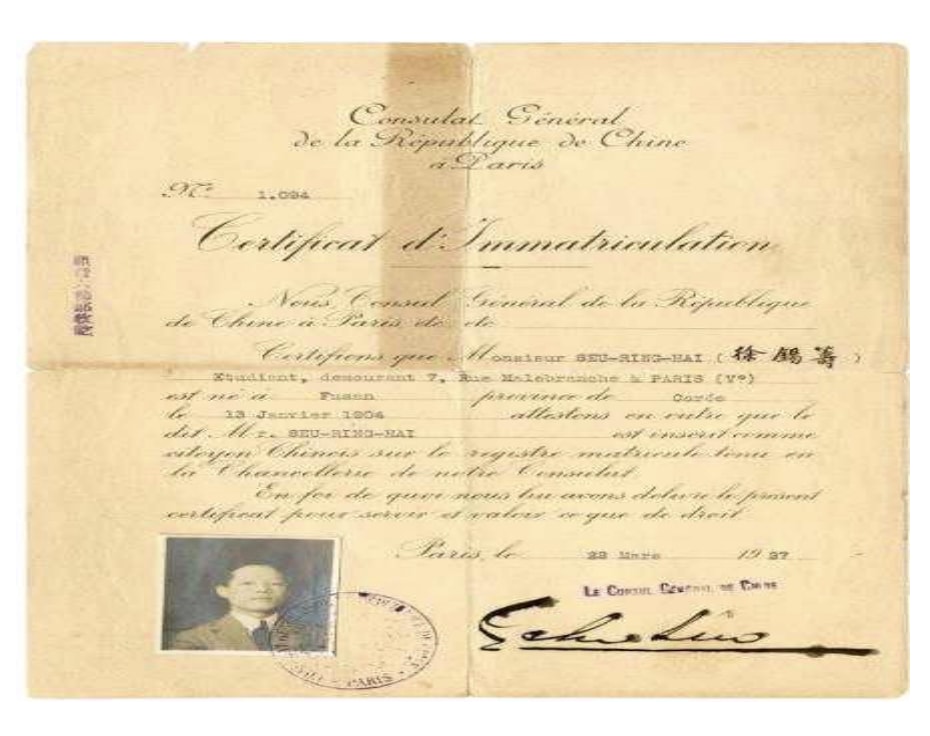 Consulat Général
de la République de Chine
à Paris
No 1.094
Certificat d'Immatriculation
Nous Consul Général de la République
de Chine à Paris etc etc
Certifions que Monsieur SEU-RING-HAI (徐錫籌)
Etudiant, demeurant 7, Rue Malebranche à PARIS (Vº)
est né à Fusan province de Corée
le 13 Janvier 1904 attestons en outre que le
dit Mr. SEU-RING-HAI est inscrit comme
citoyen Chinois sur le registre matricule tenu en
la Chancellerie de notre Consulat.
En foi de quoi nous lui avons délivré le présent
certificat pour servir et valoir ce que de droit
Paris, le Mars 19
LE CONSUL GÉNÉRAL DE CHINE
PARIS